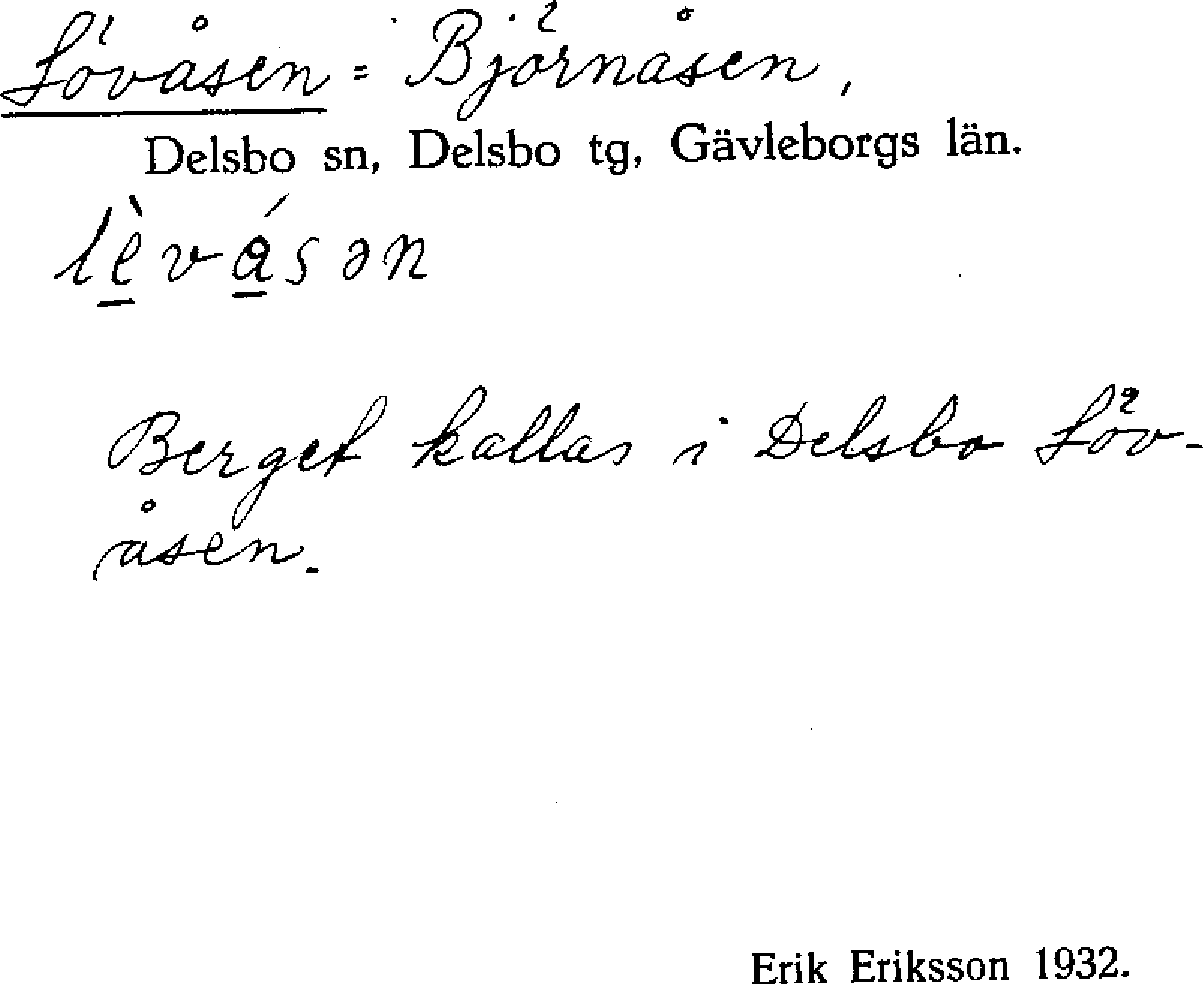 Lövåsen = Björnåsen,
Delsbo sn, Delsbo tg, Gävleborgs län.
lè̱vá̱sən
Berget kallas i Delsbo Löv-
åsen.
Erik Eriksson 1932.